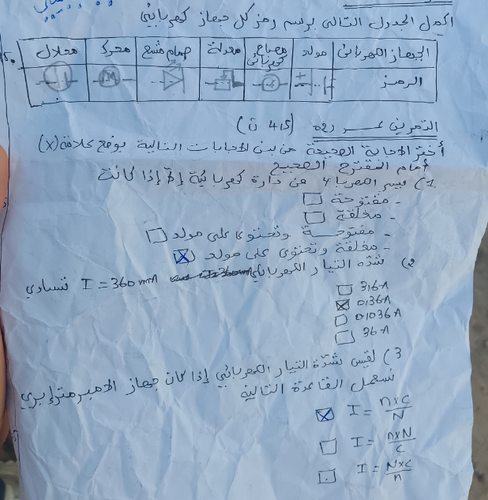 اكمل الجدول التالي برسم رمز كل جهاز كهربائي
الجهاز الكهربائي | مولد | مصباح كهربائي | معدلة | صمام مشع | محرك | محلال
الرمز
التمرين عدد 02 (4,5 ن)
أختر الاجابة الصحيحة من بين الاجابات التالية بوضع علامة (x)
أمام المقترح الصحيح
1) يسير الكهرباء في دارة كهربائية إلا إذا كانت
- مفتوحة
- مغلقة
- مفتوحة وتحتوي على مولد
- مغلقة وتحتوي على مولد
2) شدة التيار الكهربائي I = 360 mA تساوي
3,6 A
0,36 A
0,036 A
36 A
3) لقيس شدة التيار الكهربائي إذا كان جهاز الامبرمتر إبري
نستعمل القاعدة التالية
I = n×c/N
I = n×N/c
I = N×c/n